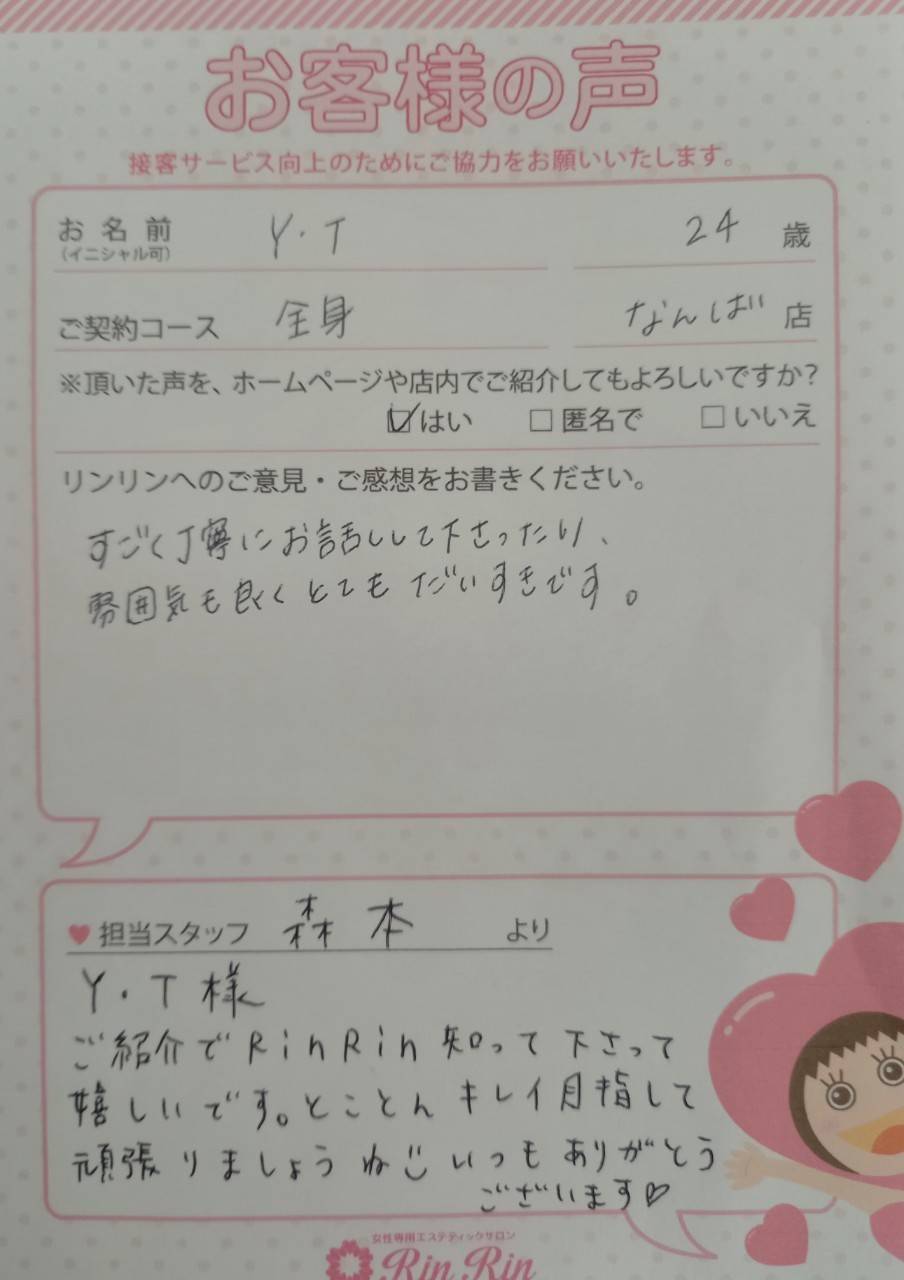 お客様の声
接客サービス向上のためにご協力をお願いいたします。
お名前 Y・T 24 歳
(イニシャル可)
ご契約コース 全身 なんば 店
※頂いた声を、ホームページや店内でご紹介してもよろしいですか?
☑はい □匿名で □いいえ
リンリンへのご意見・ご感想をお書きください。
すごく丁寧にお話しして下さったり、
雰囲気も良くとてもだいすきです。
♥担当スタッフ 森本 より
Y・T様
ご紹介でRinRin知って下さって
嬉しいです。とことんキレイ目指して
頑張りましょうね いつもありがとう
ございます♡
女性専用エステティックサロン
Rin Rin